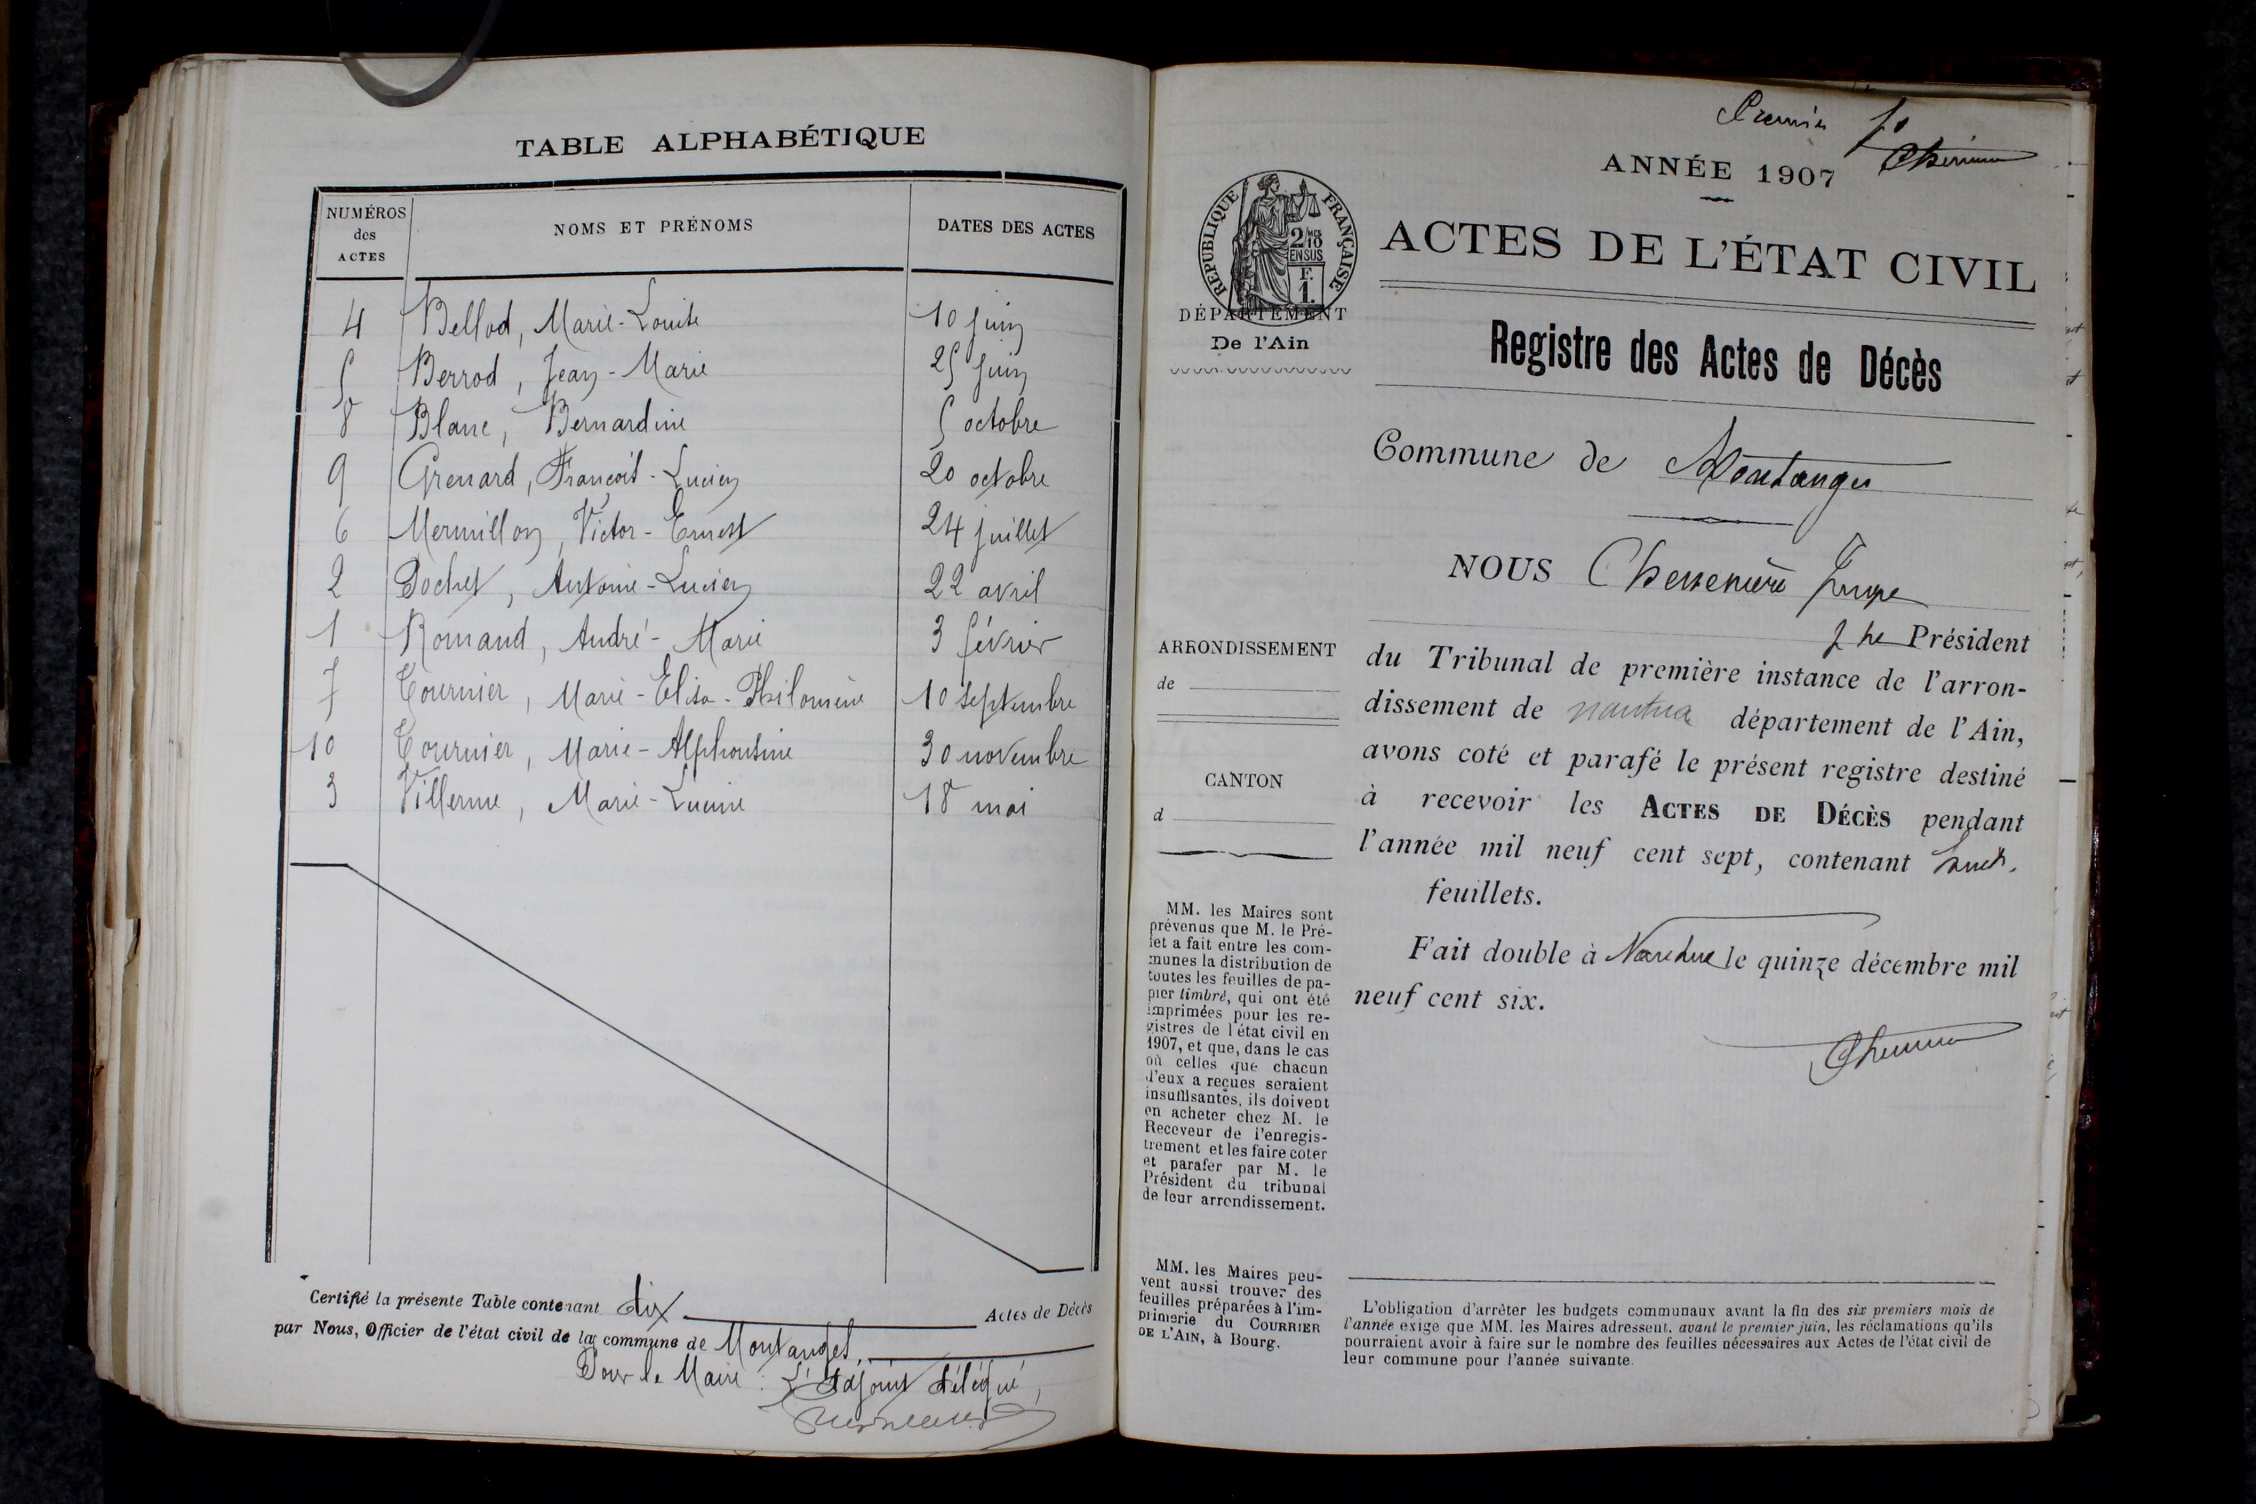 TABLE ALPHABÉTIQUE
NUMÉROS des ACTES NOMS ET PRÉNOMS DATES DES ACTES
4 Bellod, Marie-Louise 10 juin
5 Berrod, Jean-Marie 25 juin
8 Blanc, Bernardine 5 octobre
9 Grenard, François-Lucien 20 octobre
6 Mermillon, Victor-Ernest 24 juillet
2 Pochet, Antoine-Lucien 22 avril
1 Romand, André-Marie 3 février
7 Tournier, Marie-Elisa-Philomène 10 septembre
10 Tournier, Marie-Alphonsine 30 novembre
3 Villerme, Marie-Lucine 18 mai
Certifié la présente Table contenant dix Actes de Décès
par Nous, Officier de l'état civil de la commune de Montanges,
Pour le Maire : L'Adjoint délégué,
Premier fo
ANNÉE 1907
RÉPUBLIQUE FRANÇAISE
2/10 MES
EN SUS
F.
1.
ACTES DE L'ÉTAT CIVIL
DÉPARTEMENT
De l'Ain
Registre des Actes de Décès
Commune de Montanges
NOUS Juge
Président
du Tribunal de première instance de l'arron-
dissement de nantua département de l'Ain,
avons coté et parafé le présent registre destiné
à recevoir les ACTES DE DÉCÈS pendant
l'année mil neuf cent sept, contenant
feuillets.
Fait double à Nantua le quinze décembre mil
neuf cent six.
ARRONDISSEMENT
de
CANTON
d
MM. les Maires sont
prévenus que M. le Pré-
fet a fait entre les com-
munes la distribution de
toutes les feuilles de pa-
pier timbré, qui ont été
imprimées pour les re-
gistres de l'état civil en
1907, et que, dans le cas
où celles que chacun
d'eux a reçues seraient
insuffisantes, ils doivent
en acheter chez M. le
Receveur de l'enregis-
trement et les faire coter
et parafer par M. le
Président du tribunal
de leur arrondissement.
MM. les Maires peu-
vent aussi trouver des
feuilles préparées à l'im-
primerie du COURRIER
DE L'AIN, à Bourg.
L'obligation d'arrêter les budgets communaux avant la fin des six premiers mois de
l'année exige que MM. les Maires adressent, avant le premier juin, les réclamations qu'ils
pourraient avoir à faire sur le nombre des feuilles nécessaires aux Actes de l'état civil de
leur commune pour l'année suivante.